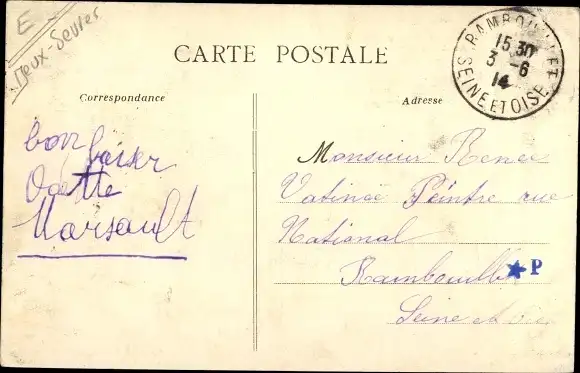 E
Deux-Sevres
CARTE POSTALE
RAMBOUILLET
15 30
3 -6
14
SEINE ET OISE
Correspondance
Adresse
bon baiser
Odette
Marsault
Monsieur Renée
Vatinee Peintre rue
National
Rambouille
P
Seine et Oise